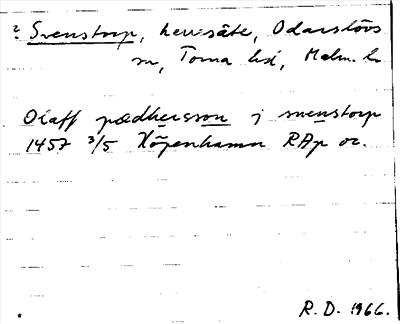 ? Svenstorp, herresäte, Odarslövs
sn, Torna hd, Malm. l.
Olaff pædhersson j swenstorp
1457 3/5 Köpenhamn RAp or.
R.D. 1966.